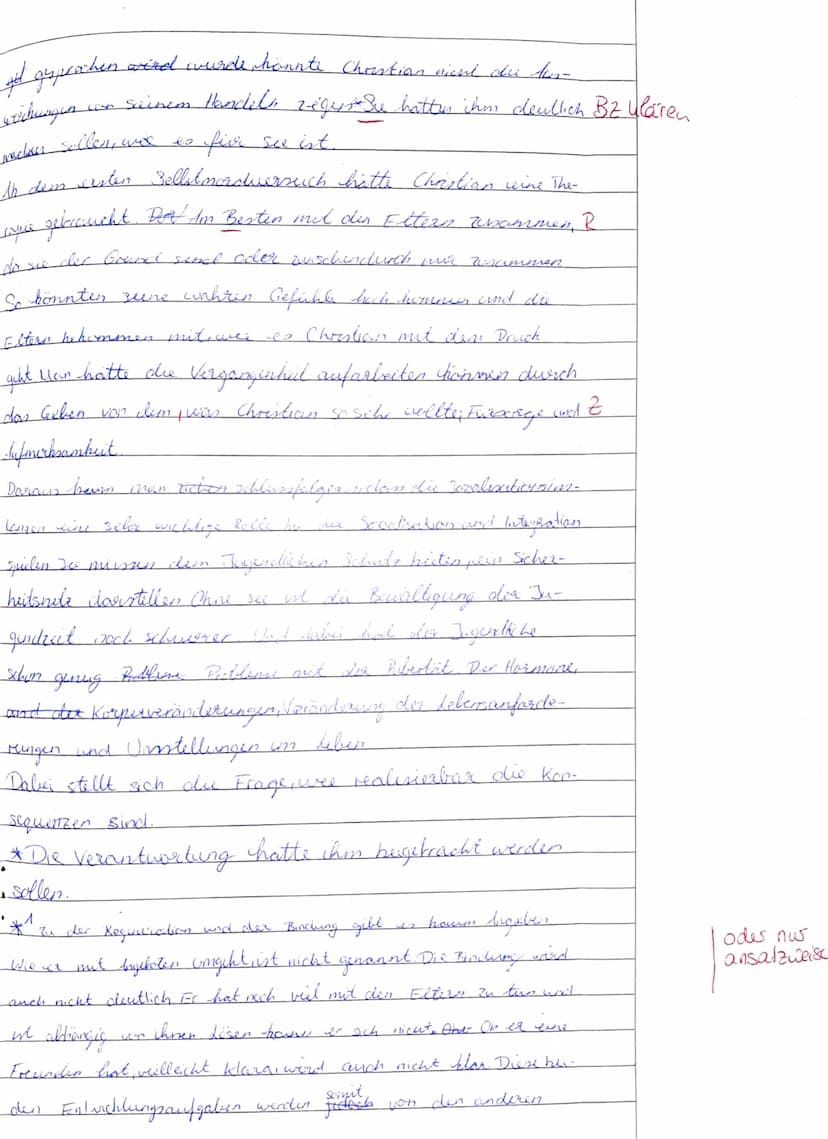 gesprochen wird wurde, könnte Christian nicht die Aus-
wirkungen von seinem Handeln zeigen.* Sie hätten ihm deutlich BZ klären
machen sollen, wie es für sie ist.
Ab dem ersten Selbstmordversuch hätte Christian eine The-
rapie gebraucht. Am Besten mit den Eltern zusammen, R
da sie der Grund sind oder zwischendurch mir zusammen
So könnten seine wahren Gefühle hoch kommen und die
Eltern bekommen mit, wie es Christian mit dem Druck
geht. Man hätte die Vergangenheit aufarbeiten können durch
das Geben von dem, was Christian so sehr wollte, Fürsorge und Z
Aufmerksamkeit.
Daraus kann man schlussfolgern, dass die Sozialisationsins-
tanzen eine sehr wichtige Rolle bei der Sozialisation und Integration
spielen. Sie müssen dem Jugendlichen Schutz bieten, ein Sicher-
heitsnetz darstellen. Ohne sie ist die Bewältigung der Ju-
gendzeit noch schwerer. Und dabei hat der Jugendliche
schon genug Probleme Probleme mit der Pubertät. Der Hormone,
und der Körperveränderungen, Veränderung der Lebensanforde-
rungen und Umstellungen im Leben.
Dabei stellt sich die Frage, wie realisierbar die Kon-
sequenzen sind.
* Die Verantwortung hätte ihm beigebracht werden
sollen.
*1 Zu der Regeneration und der Bindung gibt es kaum Angaben.
Wie er mit Angeboten umgeht, ist nicht genannt. Die Bindung wird
oder nur
ansatzweise
auch nicht deutlich. Er hat noch viel mit den Eltern zu tun und
ist abhängig von ihnen. Lösen kann er sich nicht. Ob er eine
Freundin hat, vielleicht Klara, wird auch nicht klar. Diese bei-
den Entwicklungsaufgaben werden jedoch somit von den anderen